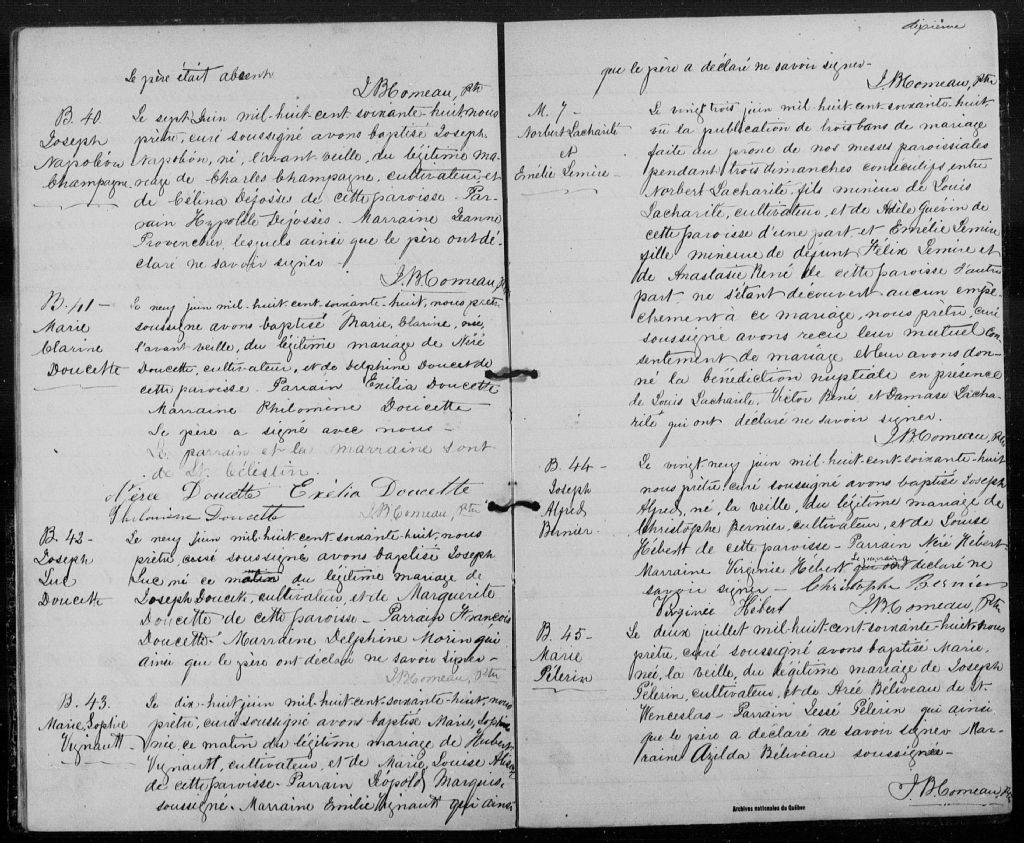 Le père était absent
J. B. Comeau, Ptre
B. 40
Joseph
Napoléon
Champagne
Le sept Juin mil-huit-cent-soixante-huit, nous
prêtre, curé soussigné avons baptisé Joseph
Napoléon, né, l'avant-veille, du légitime ma-
riage de Charles Champagne, cultivateur, et
de Célina Déjosse de cette paroisse. Par-
rain Hypolite Dejossés. Marraine Jeanne
Provencher, lesquels ainsi que le père ont dé-
claré ne savoir signer -
J. B. Comeau, Ptre
B. 41 -
Marie
Clarine
Doucette
Le neuf juin mil-huit-cent-soixante-huit, nous, prêtre
soussigné avons baptisé Marie, Clarine, née,
l'avant veille, du légitime mariage de Néré
Doucette, cultivateur, et de Delphine Doucet de
cette paroisse. Parrain Exilia Doucette
Marraine Philomène Doucette
Le père a signé avec nous -
Le parrain et la marraine sont
de St. Célestin.
Nérée Doucette Exélia Doucette
Philomène Doucette J. B. Comeau, Ptre
B. 42 -
Joseph
Luc
Doucette
Le neuf Juin mil-huit-cent-soixante-huit, nous
prêtre, curé soussigné avons baptisé Joseph
Luc né ce matin du légitime mariage de
Joseph Doucett, cultivateur, et de Marguerite
Doucette de cette paroisse - Parrain François
Doucette - Marraine Delphine Morin qui
ainsi que le père ont déclaré ne savoir signer -
J. B. Comeau, Ptre
B. 43.
Marie, Sophie
Vignault -
Le dix-huit juin mil-huit-cent-soixante-huit, nous
prêtre, curé soussigné avons baptisé Marie, Sophie
née, ce matin du légitime mariage de Hubert
Vignault, cultivateur, et de Marie, Louise
de cette paroisse - Parrain Léopold Marquis
soussigné - Marraine Emilie Vignault qui ainsi
dixième
que le père a déclaré ne savoir signer -
J. B. Comeau, Ptre
M. 7 -
Norbert Lacharité
et
Emélie Lemire -
Le vingt trois juin mil-huit-cent-soixante-huit
vu la publication de trois bans de mariage
faite au prone de nos messes paroissiales
pendant trois dimanches consécutifs, entre
Norbert Lacharité, fils mineur de Louis
Lacharité, cultivateur, et de Adèle Guévin de
cette paroisse d'une part et Emélie Lemire
fille mineure de défunt Félix Lemire et
de Anastasie René de cette paroisse d'autre
part, ne s'étant découvert aucun empê-
chement à ce mariage, nous prêtre, curé
soussigné avons reçu leur mutuel con-
sentement de mariage et leur avons don-
né la bénédiction nuptiale en présence
de Louis Lacharité, Victor René, et Damase Lacha-
rité qui ont déclaré ne savoir signer.
J. B. Comeau, Ptre
B. 44 -
Joseph
Alfred
Bernier.
Le vingt neuf juin mil-huit-cent-soixante-huit
nous prêtre curé soussigné avons baptisé Joseph
Alfred, né, la veille, du légitime mariage de
Christophe Bernier, cultivateur, et de Louise
Hébert de cette paroisse - Parrain Néré Hébert
Marraine Virginie Hébert déclaré ne
savoir signer - Christophe Bernier
Virginée Hébert J. B. Comeau, Ptre
B. 45 -
Marie
Pélerin
Le deux juillet mil-huit-cent-soixante-huit, nous
prêtre, curé soussigné avons baptisé Marie,
née, la veille, du légitime mariage de Joseph
Pélerin, cultivateur, et de Azée Béliveau de St.
Wenceslas - Parrain Jessé Pélerin qui ainsi
que le père a déclaré ne savoir signer Mar-
raine Azilda Béliveau soussignée -
J. B. Comeau, Ptre
Archives nationales du Québec